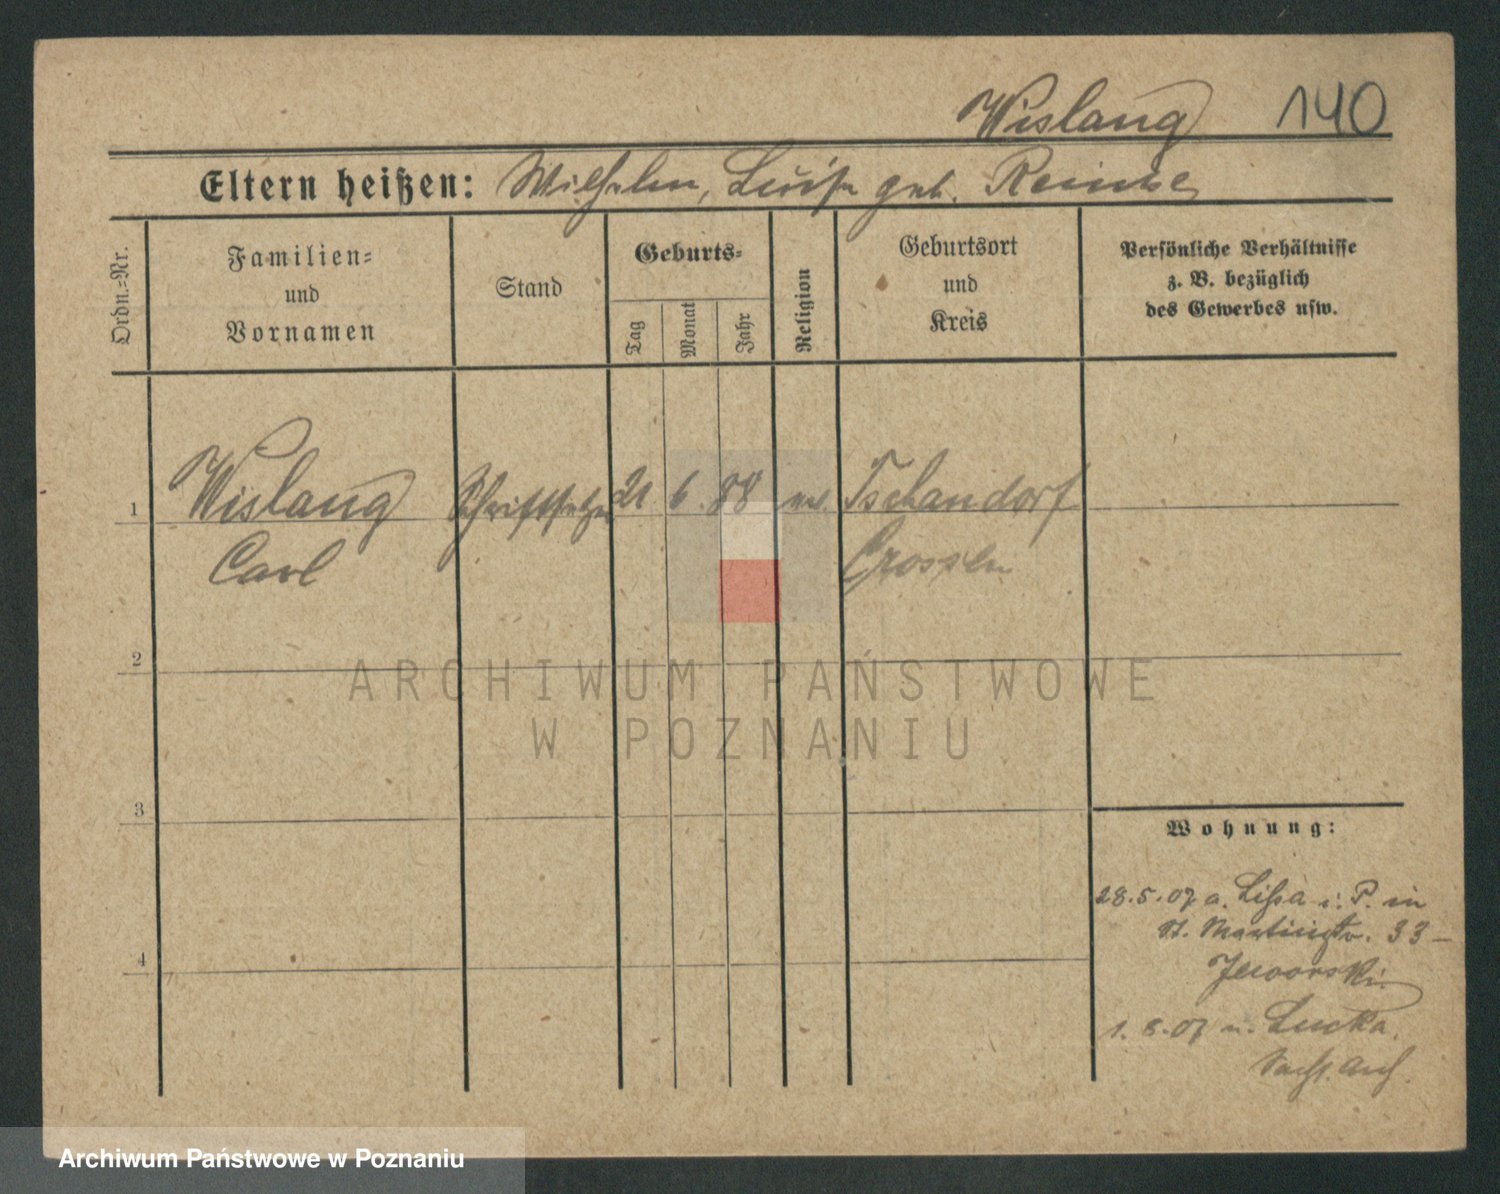 Wislang 140
Eltern heißen: Wilhelm, Luise geb. Reinke
Ordn.=Nr.
Familien=
und
Vornamen
Stand
Geburts=
Tag
Monat
Jahr
Religion
Geburtsort
und
Kreis
Persönliche Verhältnisse
z. B. bezüglich
des Gewerbes usw.
1 Wislang Schriftsetzer 21 6. 88 ev. Tschausdorf
Carl Crossen
2
3
4
Wohnung:
28.5.07 a. Lissa i. P. in
St. Martinstr. 33 –
Jaworski
1. 8. 07 n. Lucka,
Sachs. Alt.
ARCHIWUM PAŃSTWOWE
W POZNANIU
Archiwum Państwowe w Poznaniu